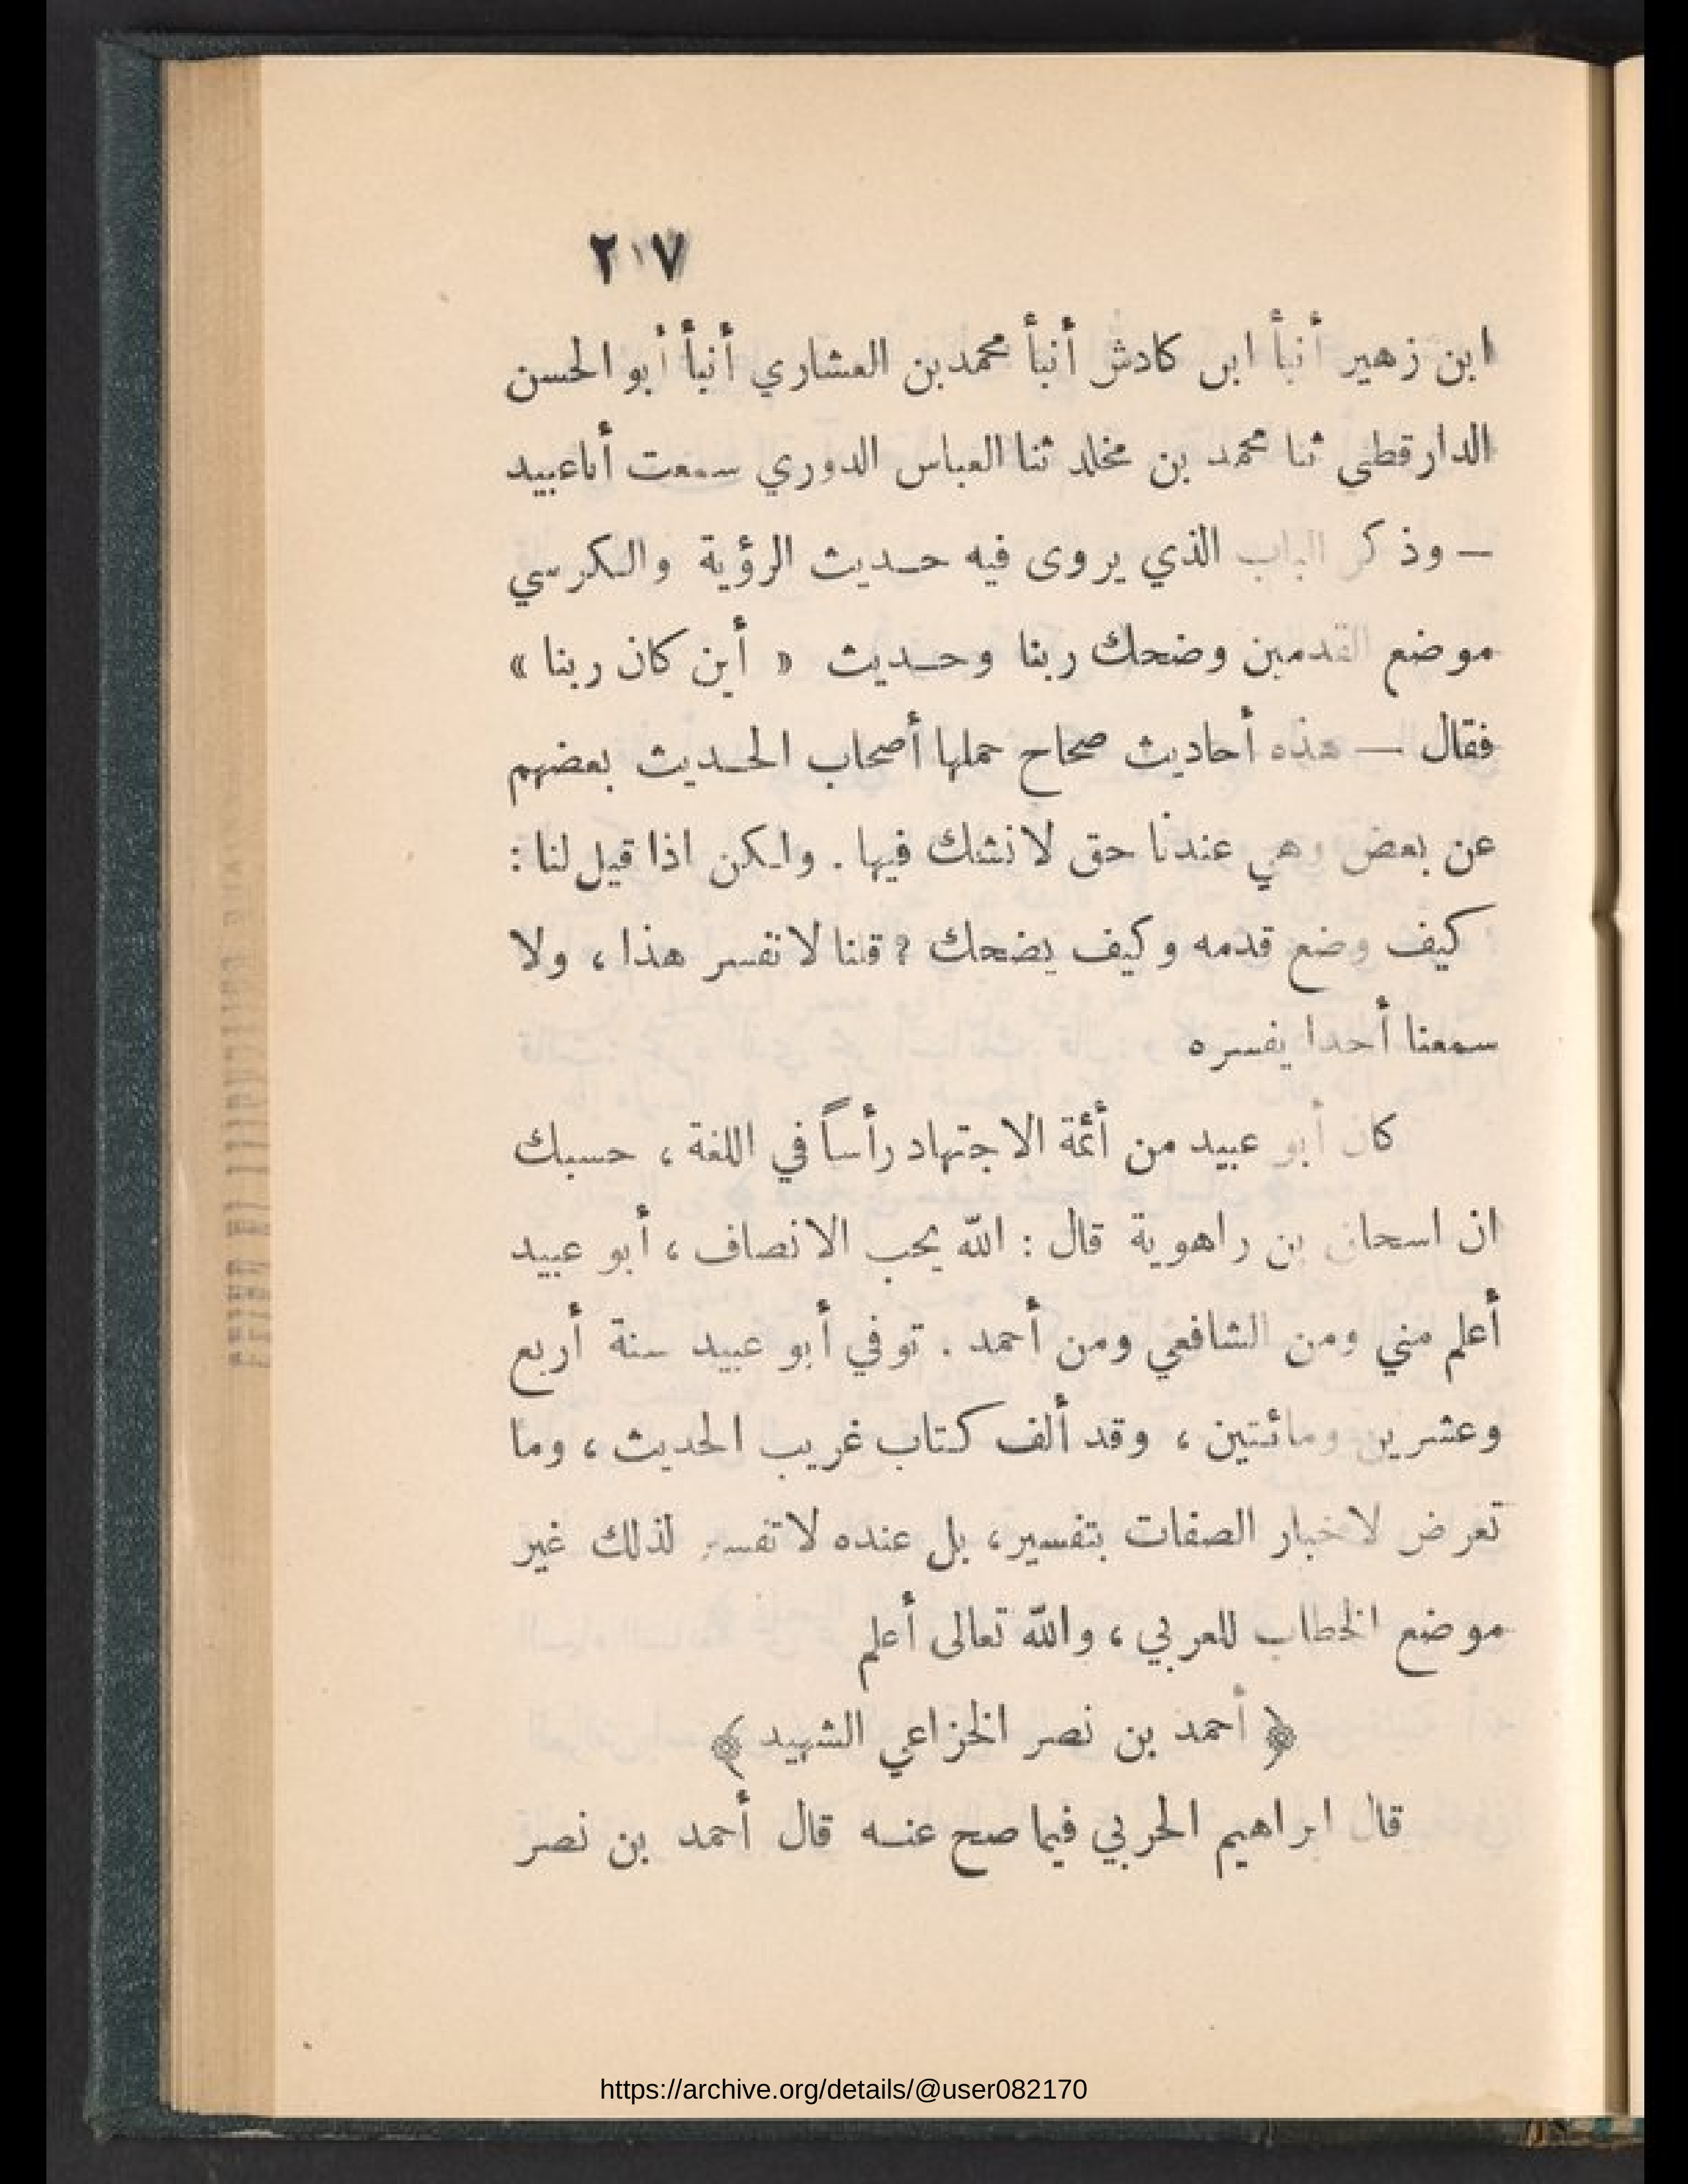 ٢١٧
ابن زهير أنبأ ابن كادش أنبأ محمد بن العشاري أنبأ أبو الحسن
الدارقطني ثنا محمد بن مخلد ثنا العباس الدوري سمعت أبا عبيد
— وذكر الباب الذي يروى فيه حديث الرؤية والكرسي
موضع القدمين وضحك ربنا وحديث « أين كان ربنا »
فقال — هذه أحاديث صحاح حملها أصحاب الحديث بعضهم
عن بعض وهي عندنا حق لا نشك فيها . ولكن اذا قيل لنا :
كيف وضع قدمه وكيف يضحك ? قلنا لا نفسر هذا ، ولا
سمعنا أحدا يفسره
كان أبو عبيد من أئمة الاجتهاد رأساً في اللغة ، حسبك
ان اسحاق بن راهوية قال : الله يحب الانصاف ، أبو عبيد
أعلم مني ومن الشافعي ومن أحمد . توفي أبو عبيد سنة أربع
وعشرين ومائتين ، وقد ألف كتاب غريب الحديث ، وما
تعرض لاخبار الصفات بتفسير، بل عنده لا تفسير لذلك غير
موضع الخطاب للعربي ، والله تعالى أعلم
﴿ أحمد بن نصر الخزاعي الشهيد ﴾
قال ابراهيم الحربي فيما صح عنه قال أحمد بن نصر
https://archive.org/details/@user082170